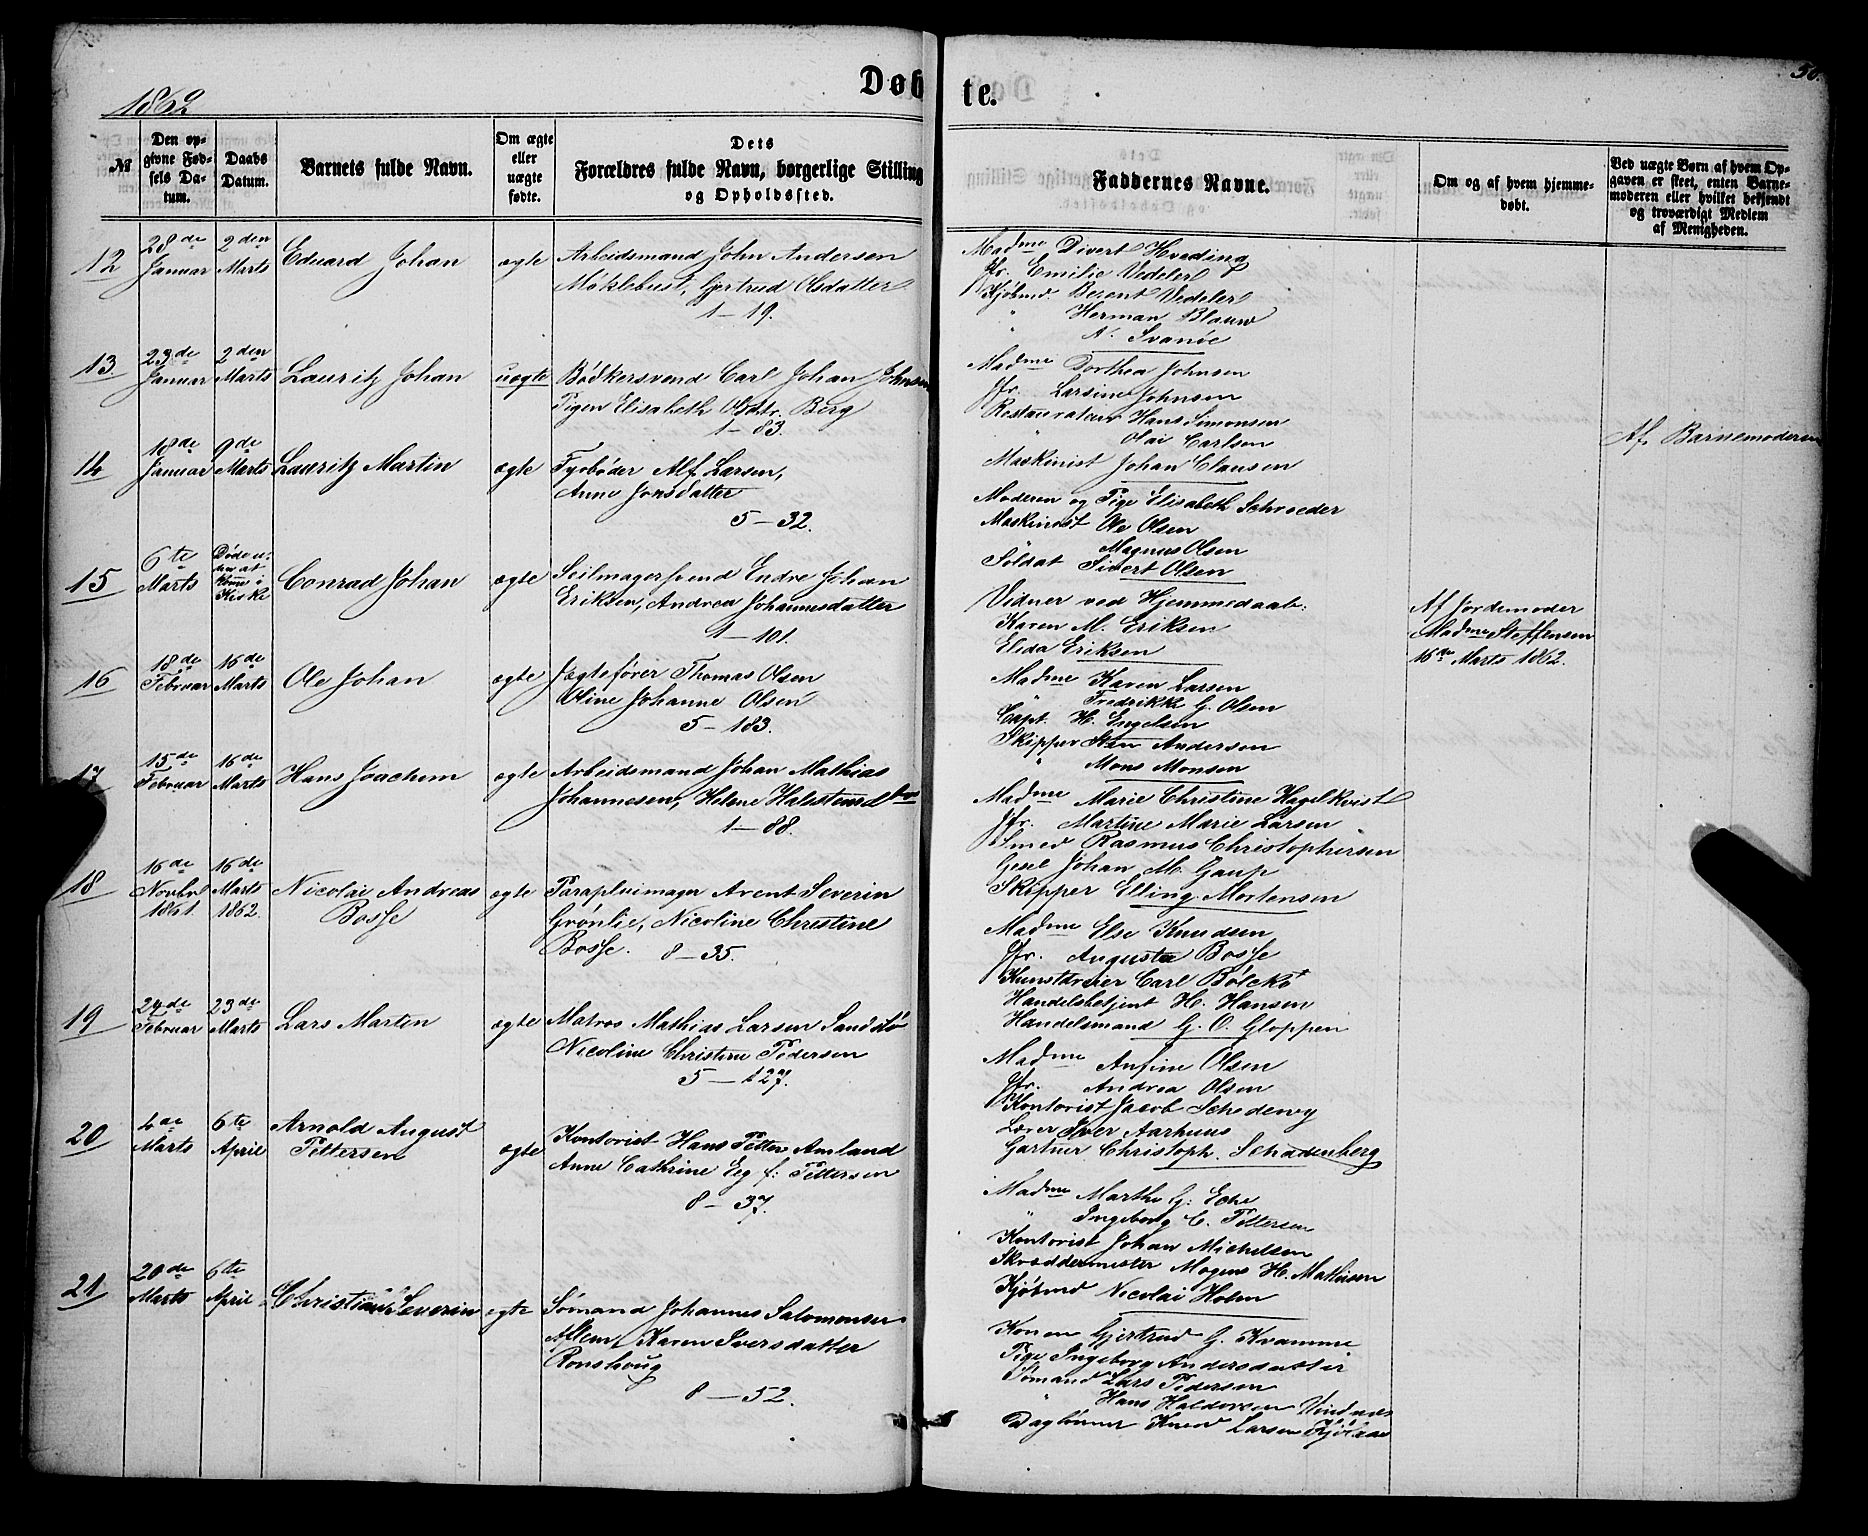 1862
Døbte.
50.
№
Den opgivne Fødsels Datum.
Daabs Datum.
Barnets fulde Navn.
Om ægte eller uægte fødte.
Dets Forældres fulde Navn, borgerlige Stilling og Opholdssted.
Faddernes Navne.
Om og af hvem hjemmedøbt.
Ved uægte Børn af hvem Opgaven er skeet, enten Barnemoderen eller hvilket bekjendt og troværdigt Medlem af Menigheden.
12
28de Januar
2den Marts
Eduard Johan
ægte
Arbeidsmand John Andersen
Møklebust, Gjertrud Olsdatter
1-19.
Madme Divert Hveding
Jfr. Emilie Vedeler
Kjøbmd. Berent Vedeler
" Herman Blauw
" N. Svanøe
13
23de Januar
2den Marts
Lauritz Johan
uægte
Bødkersvend Carl Johan Johnsen
Pigen Elisabeth Olsdtr. Berg
1-83.
Madme Dorthea Johnsen
Jfr. Larsine Johnsen
Restaurateur Hans Simonsen
" Olai Carlsen
Maskinist Johan Clausen
Af Barnemoderen
14
18de Januar
9de Marts
Lauritz Martin
ægte
Fyrbøder Alf Larsen,
Anne Jonsdatter
5-32.
Moderen og Pige Elisabeth Schroeder
Maskinist Ole Olsen
Magnus Olsen
Soldat Sivert Olsen
15
6te Marts
Døde uden at komme i Kirke
Conrad Johan
ægte
Seilmagersvend Endre Johan
Eriksen, Andrea Johannesdatter
1-101.
Vidner ved Hjemmedaab:
Karen M. Eriksen
Elida Eriksen
Af Jordemoder
Madme Steffensen
16de Marts 1862.
16
18de Februar
16de Marts
Ole Johan
ægte
Jægtefører Thomas Olsen
Oline Johanne Olsen
5-183.
Madme Karen Larsen
" Fredrikke G. Olsen
Capt. H. Engelsen
Skipper Sten Andersen
" Mons Monsen
17
15de Februar
16de Marts
Hans Joachem
ægte
Arbeidsmand Johan Mathias
Johannesen, Helene Halstensdtter
1-88.
Madme Marie Christine Hagelkvist
Jfr. Martine Marie Larsen
Smed Rasmus Christophersen
Gesel Johan M. Gaup
Skipper Elling Mortensen
18
16de Novbr 1861.
16de Marts 1862.
Nicolai Andreas
Bosse
ægte
Parapluimager Arent Severin
Grønlie, Nicoline Christine
Bosse. 8-35.
Madme Else Knudsen
Jfr. Augusta Bosse
Kunstdreier Carl Bölckt
Handelsbetjent H. Hansen
Handelsmand G. O. Gloppen
19
24de Februar
23de Marts
Lars Martin
ægte
Matros Mathias Larsen Sandstø
Nicoline Christine Pedersen
5-127.
Madme Anfine Olsen
Jfr. Andrea Olsen
Kontorist Jacob Schedewy
Lærer Iver Aarhuus
Gartner Christoph. Schadenberg
20
4de Marts
6te April
Arnold August
Pettersen
ægte
Kontorist Hans Petter Amland
Anne Cathrine Eeg f: Pettersen
8-37.
Madme Marthe G. Eche
" Ingeborg C. Pettersen
Kontorist Johan Michelsen
Skræddermester Mogens H. Mathisen
Kjøbmd Nicolai Holm
21
20de Marts
6te April
Christian Severin
ægte
Sømand Johannes Salomonsen
Aflem, Karen Iversdatter
Ronshoug
8-52.
Konen Gjertrud G. Kvamme
Pige Ingeborg Andersdatter
Sømand Lars Pedersen
" Hans Haldorsen Vindnæs
Daglønner Knud Larsen